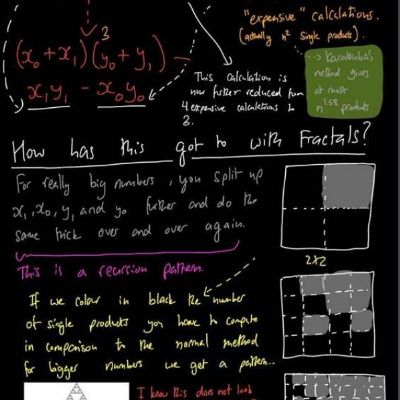 "expensive" calculations.
(actually n² single products).
3
(x₀ + x₁)(y₀ + y₁) -
x₁y₁ - x₀y₀
This calculation is
now further reduced from
4 expensive calculations to
3.
→ Karatsuba's
method gives
at most
n^1.58 products
How has this got to with Fractals?
For really big numbers, you split up
x₁, x₀, y₁ and y₀ further and do the
same trick over and over again.
This is a recursion pattern.
2x2
If we colour in black the number
of single products you have to compute
in comparison to the normal method
for bigger numbers we get a pattern...
I know this does not look